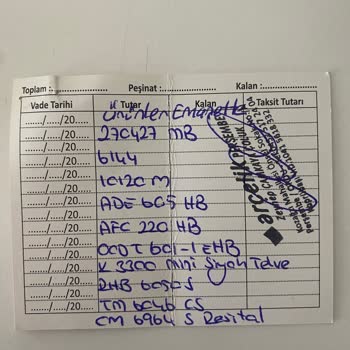 Toplam :.................. Peşinat :.................. Kalan :..................
Vade Tarihi Tutar Kalan Taksit Tutarı
Ürünler Emanette
....../....../20..... 270427 MB
....../....../20..... 6144
....../....../20..... 10120 M
....../....../20..... ADE 605 HB
....../....../20..... AFC 220 HB
....../....../20..... OCDT 601-1 EHB
....../....../20..... K 3300 mini Siyah Telve
....../....../20..... RHB 6050 S
....../....../20..... TM 6046 CS
CM 6964 S Resital
arçelik